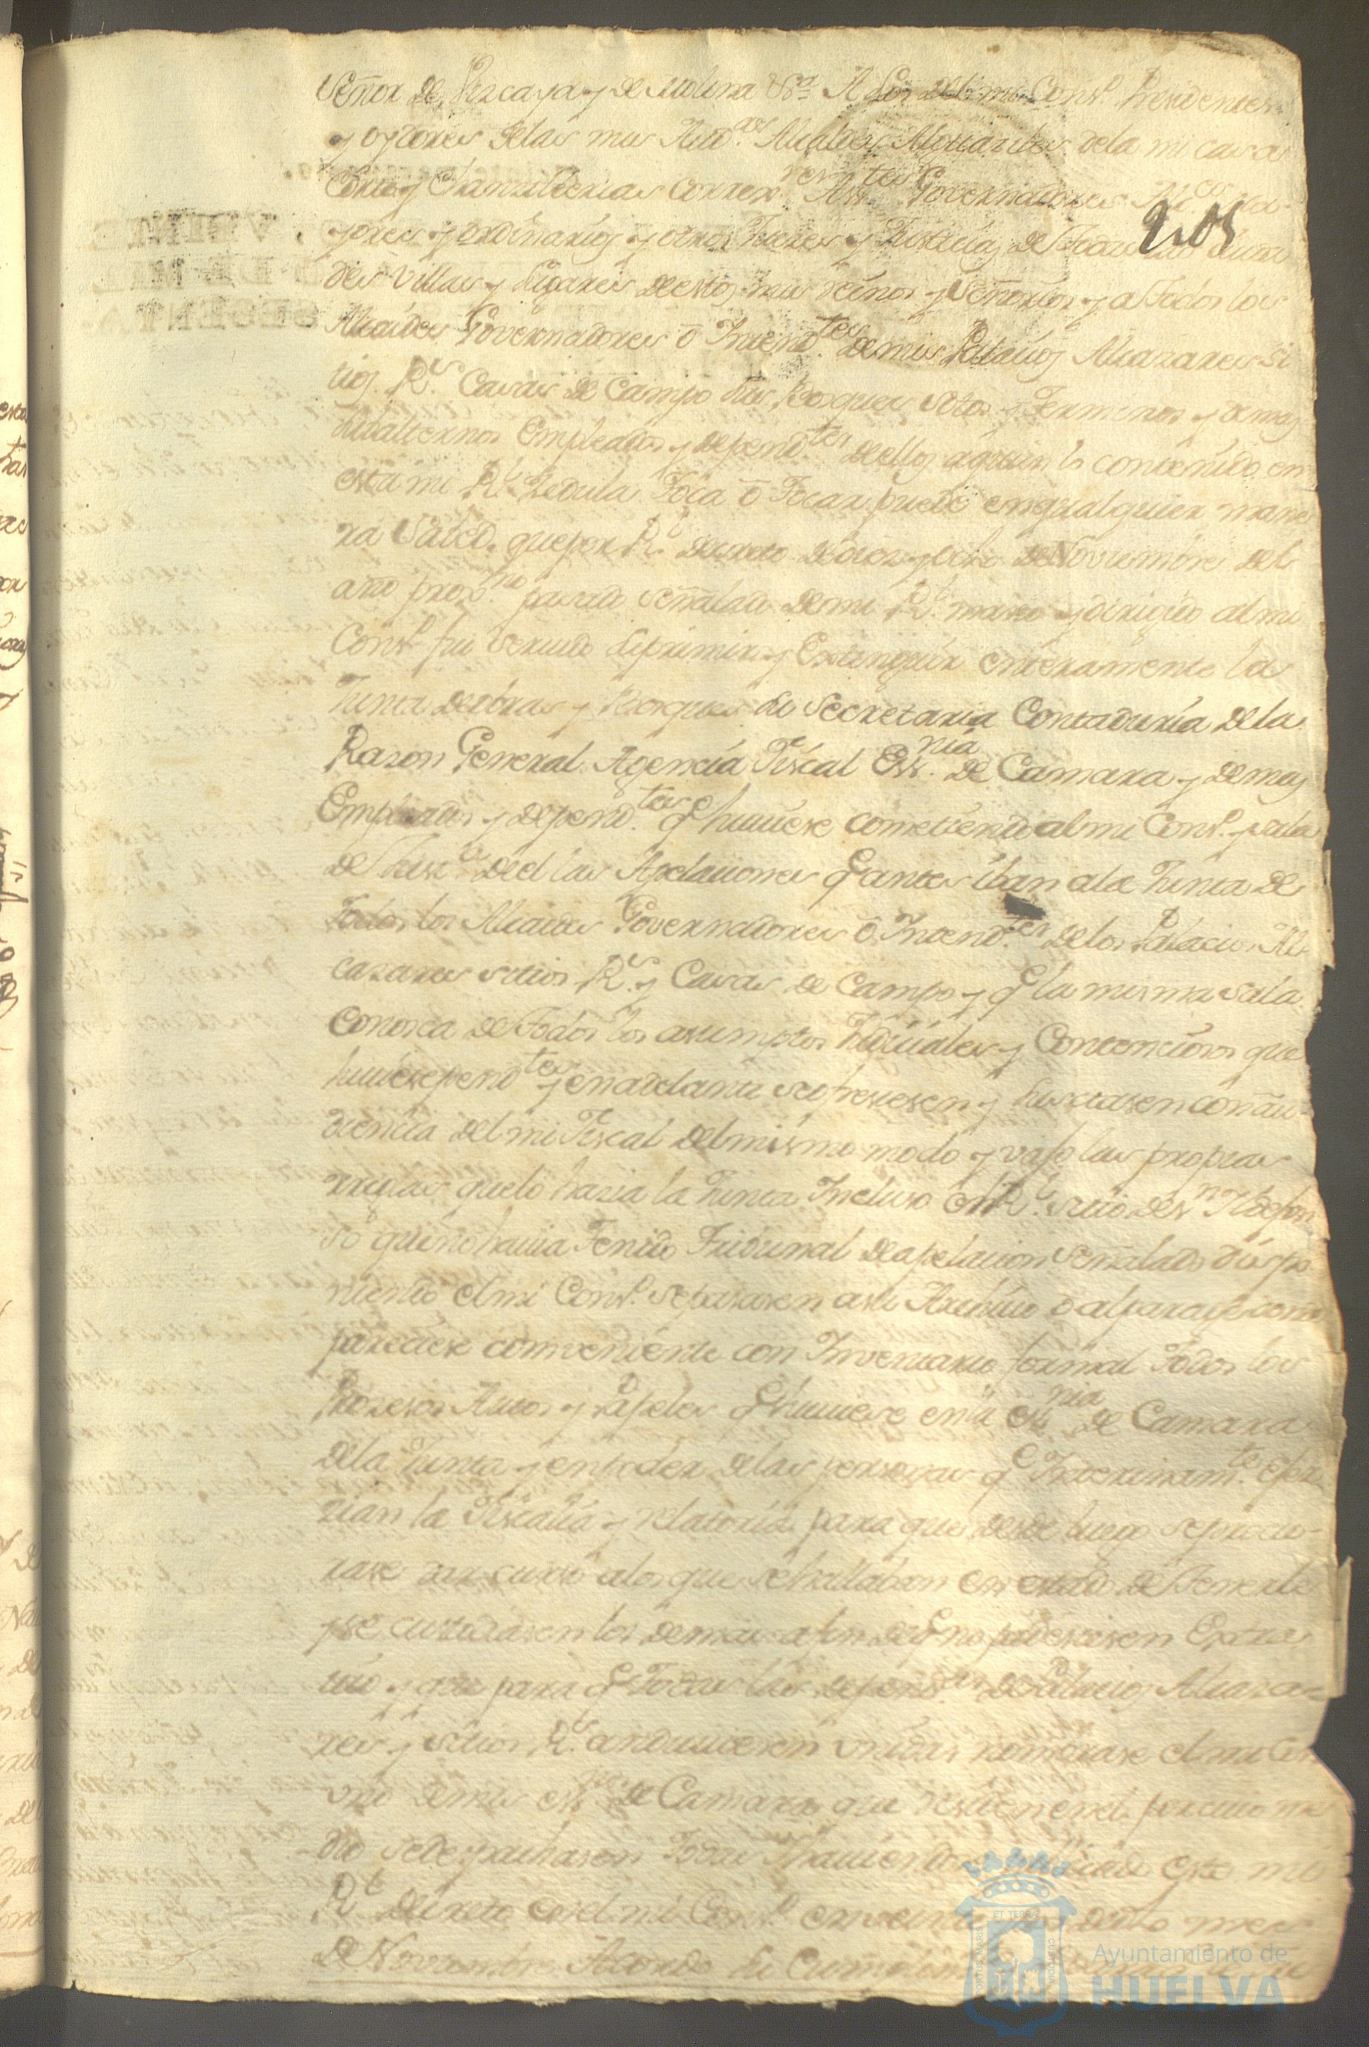 Señor de Vizcaya y de Molina &ra. A los del mi Cons.º Presidentes
y oydores de las mis Aud.as Alcaldes Alguaciles de la mi casa
Corte y Chanzillerias correx.res Asist.tes Governadores Alc.es ma-
205
yores y ordinarios y otros Jueces y Justicias de todas las Ciuda
des Villas y Lugares de estos mis reinos y Señorios y a todos los
Alcaides Governadores ò Intend.tes de mis Palacios Alcazares Si
tios R.s Casas de Campo sus Bosques sotos y terminos y demas
subalternos Empleados y depend.tes de ellos a quien lo contenido en
esta mi R.l Zedula toca ò tocar puede en qualquier mane
ra Sabed. que por R.l decreto de diez y ocho de Noviembre del
año prox.mo pasado señalado de mi R.l mano y dirigido al mi
Cons.º fui servido suprimir y Extinguir enteramente la
Junta de obras y Bosques su Secretaria Contaduria de la
Razon General Agencia Fiscal Ess.nia de Camara y demas
Empleados y depend.tes q.e huviese cometiendo al mi Cons.º y sala
de Just.a de el las Apelaciones q.e antes iban a la Junta de
todos los Alcaides Governadores ò Intend.tes de los Palacios Al
cazares sitios R.s y Casas de Campo y q.e la misma sala
conosca de todos los asumptos Judiciales y Contenciosos que
huviese pend.tes y en adelante se ofreciesen y suscitasen con au
diencia del mi Fiscal del mismo modo y vajo las propias
reglas que lo hazia la Junta Incluso el R.l sitio de S.n Ildefon
so que no havia tenido Tribunal de apelacion señalado dispo
niendo el mi Cons.º se pasasen a su Archivo ò al parage como
pareciese conveniente con Inventario formal todos los
Procesos Autos y Papeles q.e huviese en la ess.nia de Camara
de la Junta y en poder de las personas q.e Interinam.te eser
zian la Fiscalia y relatoria para que desde luego se procu-
rase dar curso a los que se hallaban en estado de tenerle
y se custodiasen los demas a fin de q.e no padeciesen Extra
vio y que para q.e todas las depend.as de Palacios Alcaza-
res y sitios R.s anduviesen unidas nombrase el mi Con
uno de mis ess.nos de Camara que residen en el por cuio me
dio se despachasen todas y haviendose publicado este mi
R.l Decreto en el mi Cons.º en veinte de dicho mes
de Noviembre Acordo su Cumplimiento
Ayuntamiento de
HUELVA